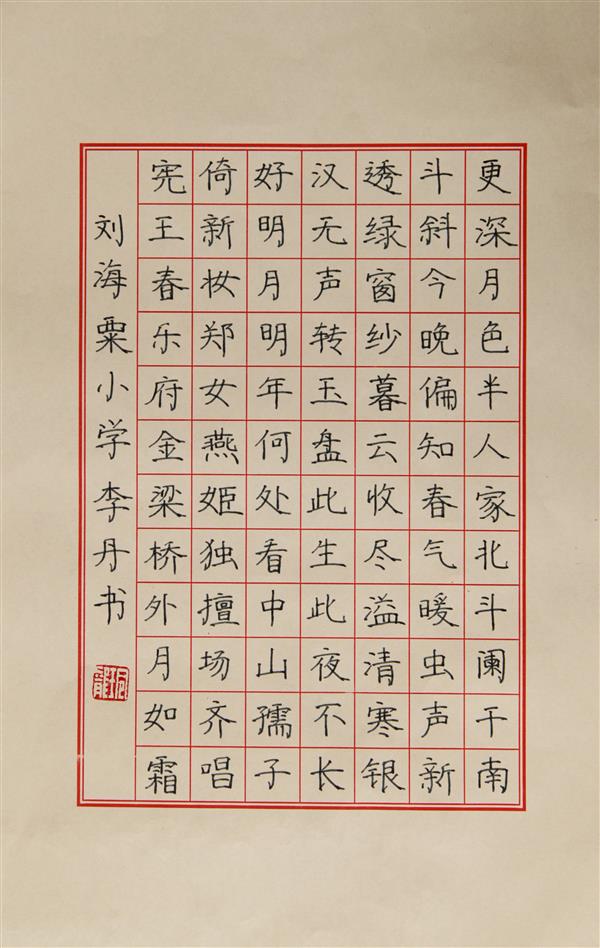 更深月色半人家北斗阑干南
斗斜今晚偏知春气暖虫声新
透绿窗纱暮云收尽溢清寒银
汉无声转玉盘此生此夜不长
好明月明年何处看中山孺子
倚新妆郑女燕姬独擅场齐唱
宪王春乐府金梁桥外月如霜
刘海粟小学李丹书